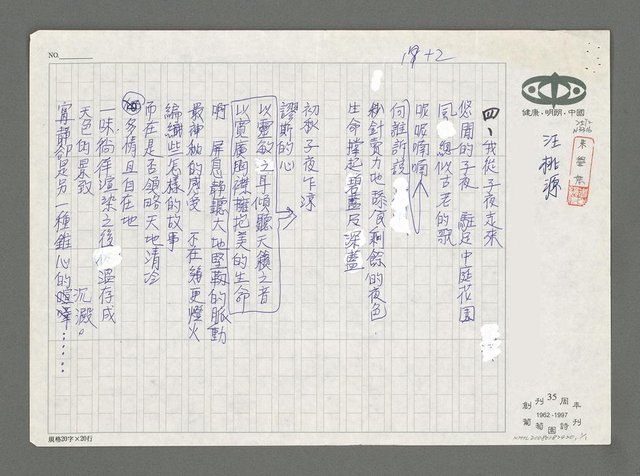 健康・明朗・中國
汪桃源
四、我從子夜走來
悠閒的子夜 駐足中庭花園
風 纏似古老的歌
呢呢喃喃
向誰訴說
秒針賣力地 舔食剩餘的夜色
生命撐起碧藍及深藍
初秋子夜乍涼
謬斯的心
以靈敏之耳傾聽天籟之音
以寬廣胸襟擁抱美的生命
啊 屏息靜聽大地堅韌的脈動
最神秘的感受 不在豬更燈火
編織些怎樣的故事
而在是否領略天地清冷
多情且自在地
一味徜徉渲染之後 溫存成
天色的景致
沉澱。
寧靜卻是另一種錐心的喧嘩……
NO.
規格20字×20行
創刊35周年
1962-1997
葡萄園詩刊